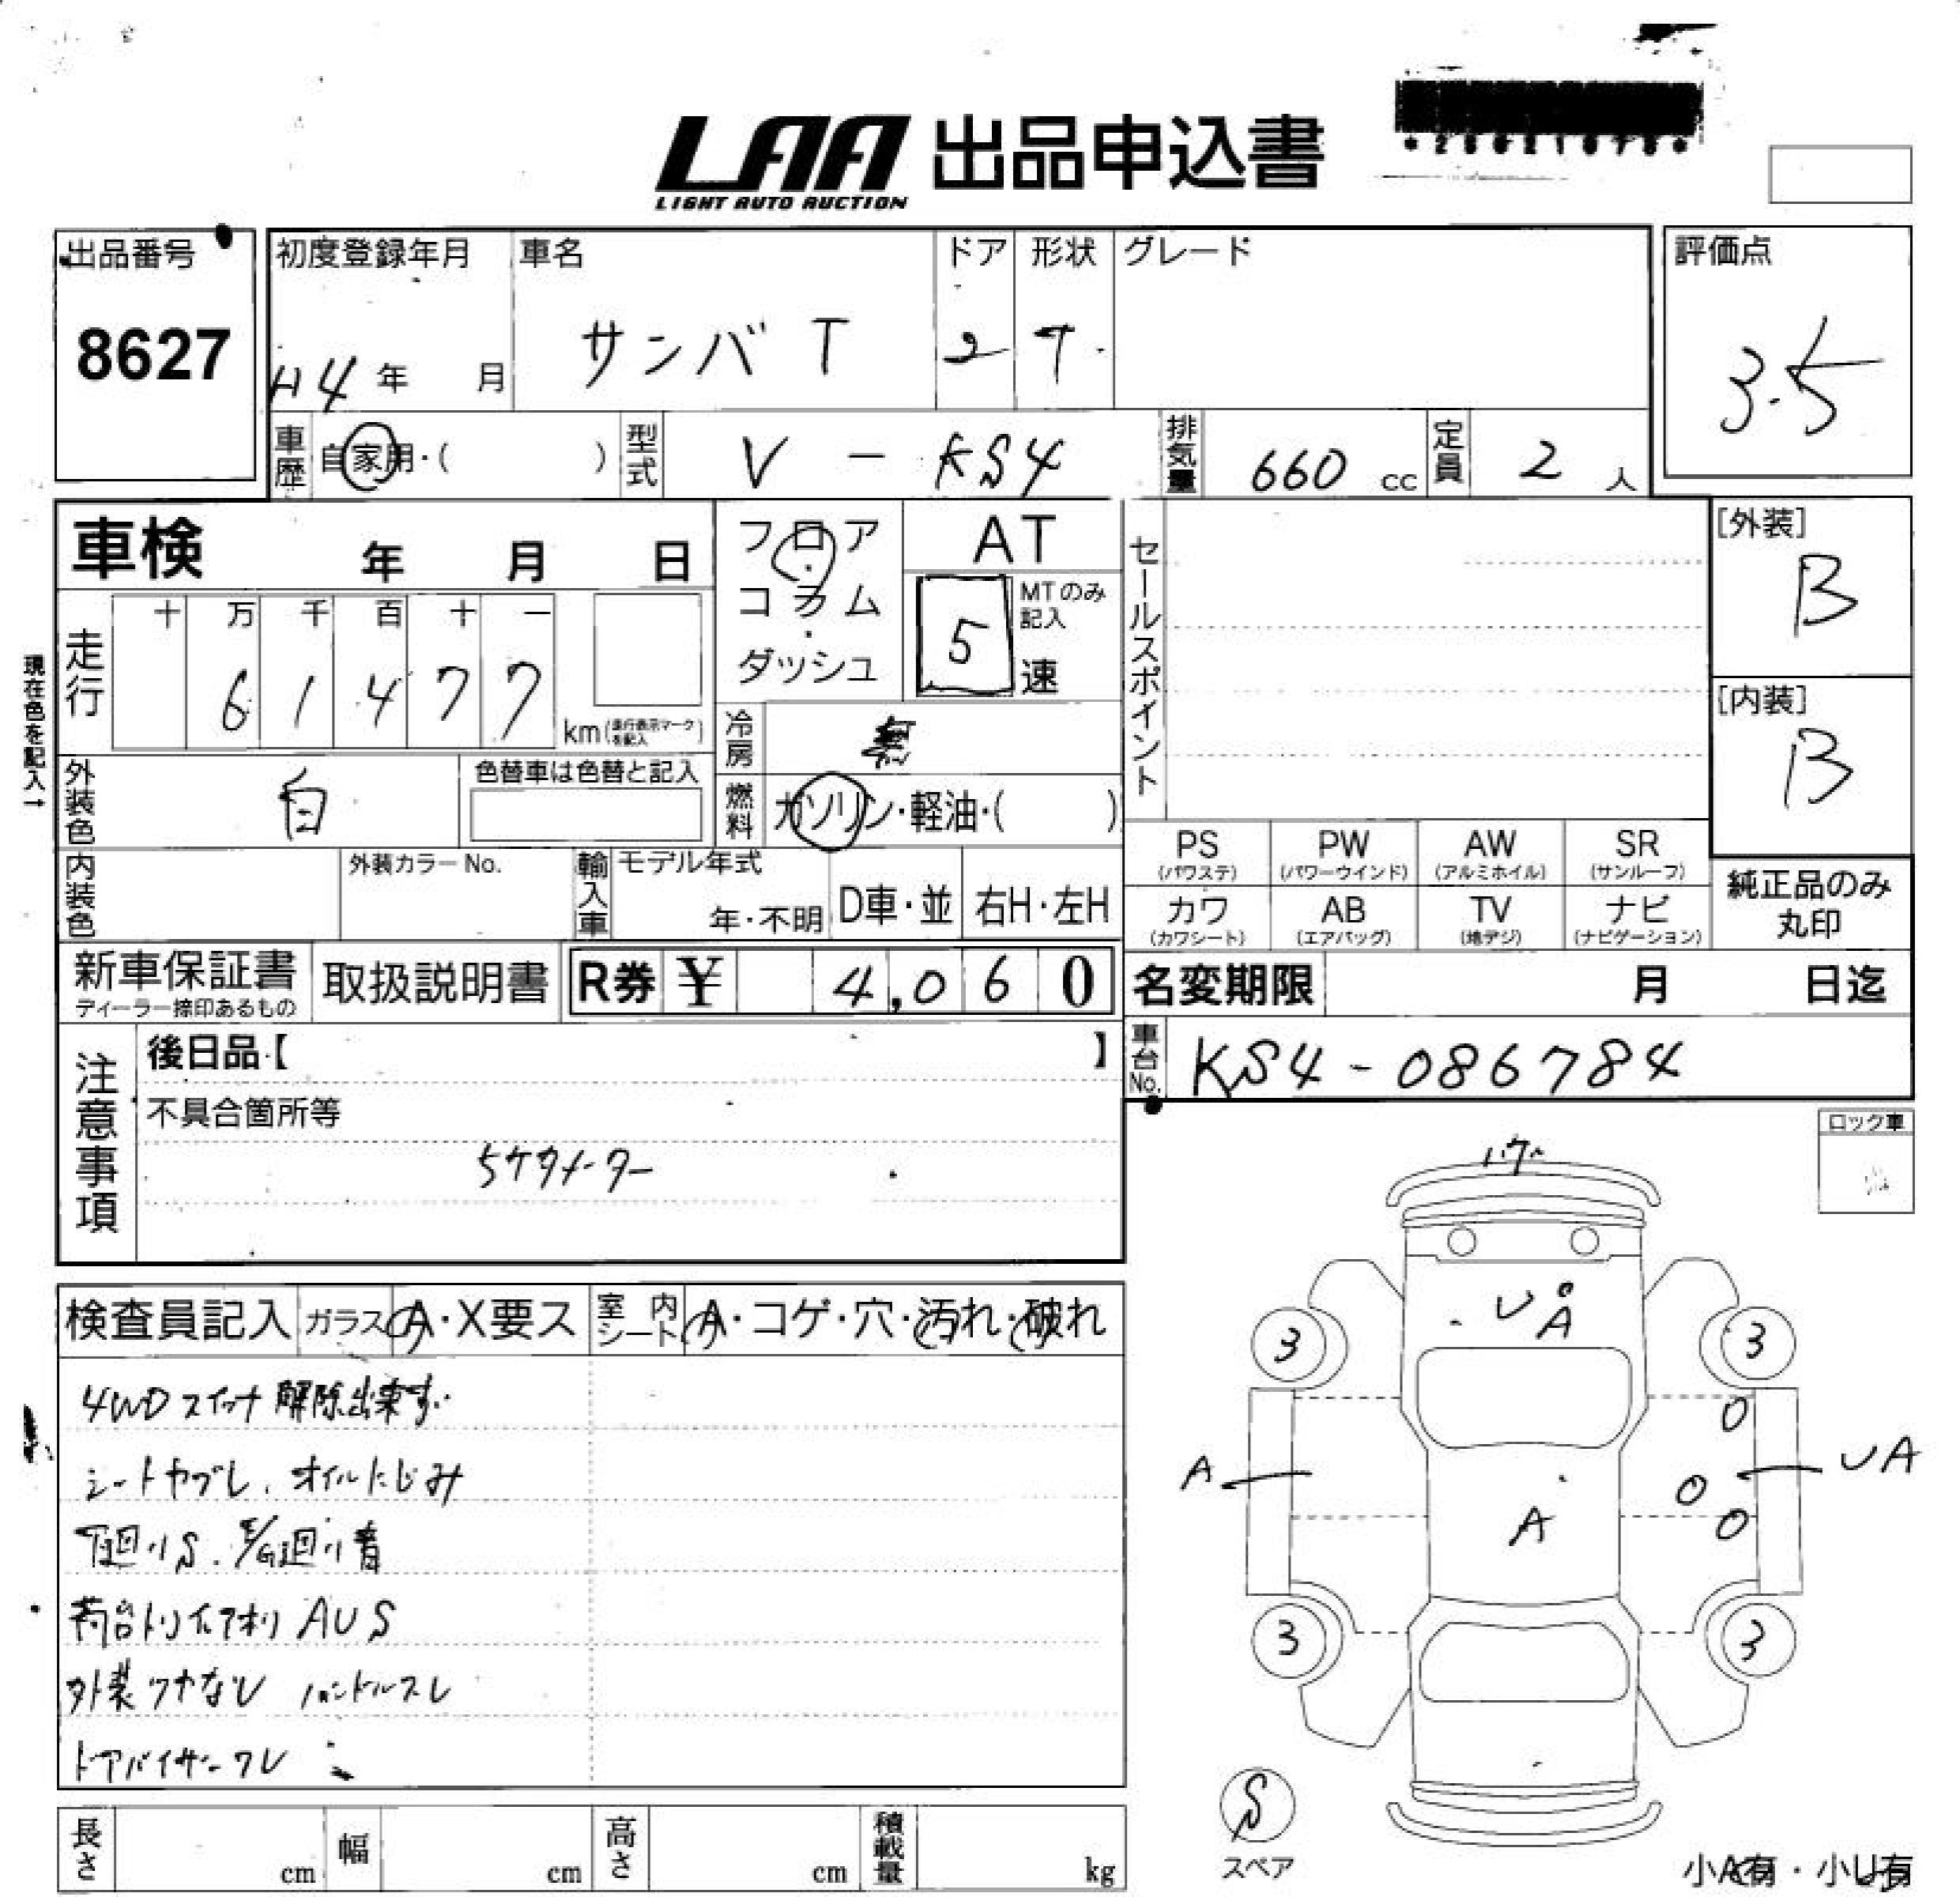 LAA 出品申込書
LIGHT AUTO AUCTION
出品番号
8627
初度登録年月 車名 ドア 形状 グレード
H4 年 月 サンバ T 2 T
評価点
3.5
車歴 自家用・( ) 型式 V - KS4 排気量 660 cc 定員 2 人
車検 年 月 日
フロア・コラム・ダッシュ
AT
MTのみ記入
5 速
セールスポイント
[外装]
B
[内装]
B
現在色を記入→
走行 十 万 千 百 十 一
6 1 4 7 7 km
冷房 無
外装色 白 色替車は色替と記入
燃料 ガソリン・軽油・( )
内装色 外装カラーNo. 輸入車 モデル年式 年・不明 D車・並 右H・左H
PS (パワステ) PW (パワーウインド) AW (アルミホイル) SR (サンルーフ)
カワ (カワシート) AB (エアバッグ) TV (地デジ) ナビ (ナビゲーション)
純正品のみ
丸印
新車保証書 取扱説明書 R券 ¥ 4,060
ディーラー捺印あるもの
名変期限 月 日迄
車台No. KS4-086784
注意事項
後日品【 】
不具合箇所等
5ケタメーター
ロック車
検査員記入 ガラス A・X要ス 室内シート A・コゲ・穴・汚れ・破れ
4WDスイッチ 解除出来ず
シートヤブレ、オイルにじみ
下回りS.
荷台 アオリ AUS
外装ツヤなし ハンドルスレ
ドアバイザーワレ
UA
3 3
A A UA
3 3
S
スペア
小A有・小U有
長さ cm 幅 cm 高さ cm 積載量 kg